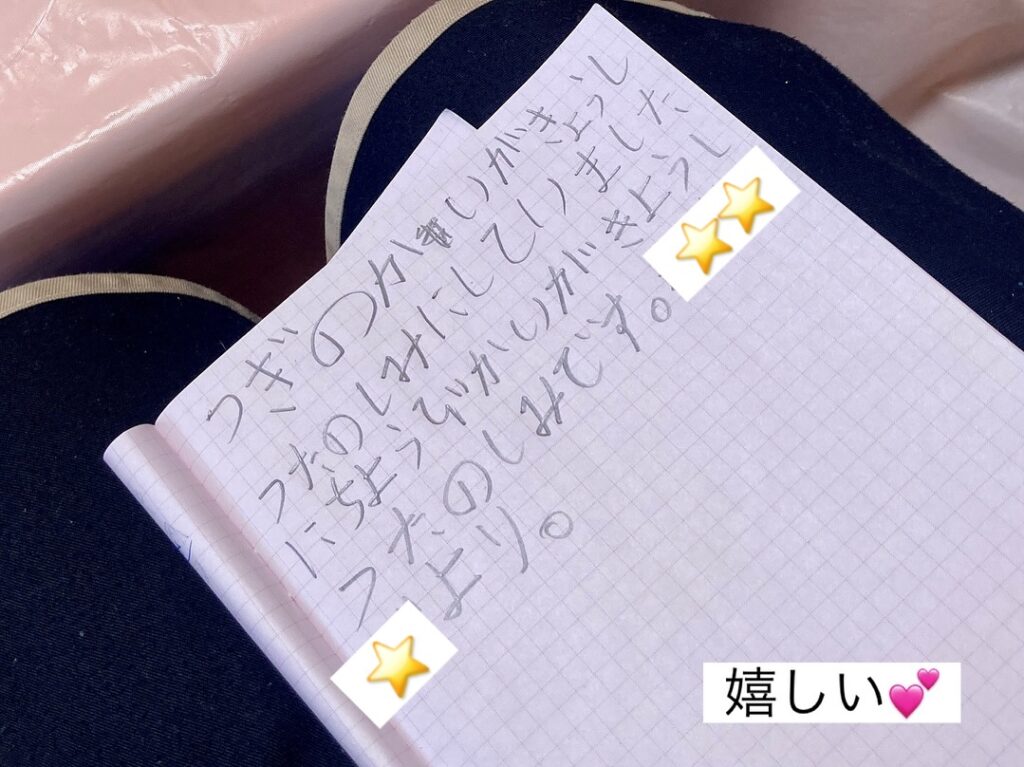 つぎのかいがきょうし
つたのしみにしていました
にちようびかいがきようし
つたのしみです。
より。
嬉しい💕